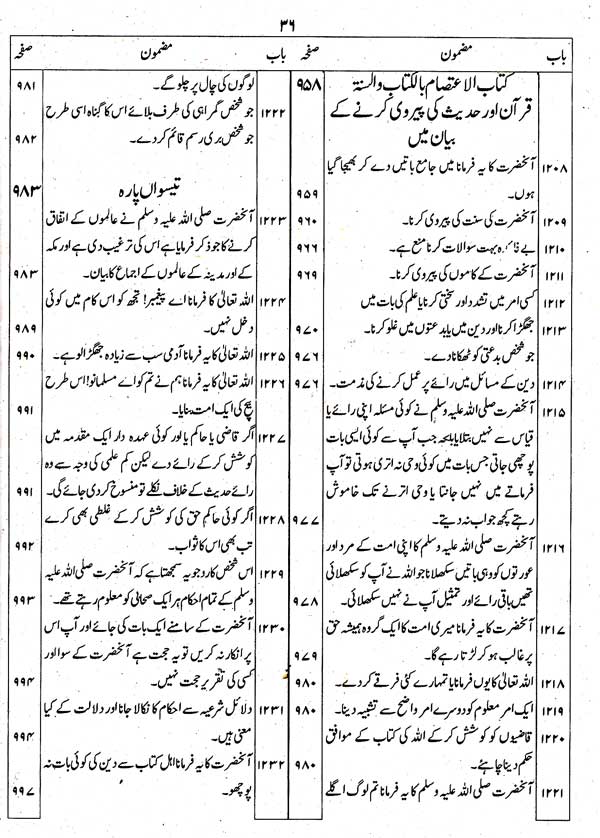 ۳۶
باب مضمون صفحہ
کتاب الاعتصام بالکتاب والسنۃ ۹۵۸
قرآن اور حدیث کی پیروی کرنے کے
بیان میں
۱۲۰۸ آنحضرت کا یہ فرمانا میں جامع باتیں دے کر بھیجا گیا
ہوں۔ ۹۵۹
۱۲۰۹ آنحضرت کی سنت کی پیروی کرنا۔ ۹۶۰
۱۲۱۰ بے فائدہ بہت سوالات کرنا منع ہے۔ ۹۶۶
۱۲۱۱ آنحضرت کے کاموں کی پیروی کرنا۔ ۹۶۹
۱۲۱۲ کسی امر میں تشدد اور سختی کرنا یا علم کی بات میں
۱۲۱۳ جھگڑا کرنا اور دین میں یا بدعتوں میں غلو کرنا۔ ۹۷۰
جو شخص بدعتی کو ٹھکانا دے۔ ۹۷۶
۱۲۱۴ دین کے مسائل میں رائے پر عمل کرنے کی مذمت۔ ۹۷۶
۱۲۱۵ آنحضرت صلی اللہ علیہ وسلم نے کوئی مسئلہ اپنی رائے یا
قیاس سے نہیں بتلایا بلکہ جب آپ سے کوئی ایسی بات
پوچھی جاتی جس بات میں کوئی وحی نہ اتری ہوتی تو آپ
فرماتے میں نہیں جانتا یا وحی اترنے تک خاموش
رہتے کچھ جواب نہ دیتے۔ ۹۷۷
۱۲۱۶ آنحضرت صلی اللہ علیہ وسلم کا اپنی امت کے مرد اور
عورتوں کو وہی باتیں سکھلانا جو اللہ نے آپ کو سکھلائی
تھیں باقی رائے اور تمثیل آپ نے نہیں سکھلائی۔ ۹۷۸
۱۲۱۷ آنحضرت کا یہ فرمانا میری امت کا ایک گروہ ہمیشہ حق
پر غالب ہو کر لڑتا رہے گا۔ ۹۷۹
۱۲۱۸ اللہ تعالیٰ کا یوں فرمانا یا تمہارے کئی فرقے کر دے۔ ۹۸۰
۱۲۱۹ ایک امر معلوم کو دوسرے امر واضح سے تشبیہ دینا۔ ۹۸۰
۱۲۲۰ قاضیوں کو کوشش کر کے اللہ کی کتاب کے موافق
حکم دینا چاہئے۔ ۹۸۰
۱۲۲۱ آنحضرت صلی اللہ علیہ وسلم کا یہ فرمانا تم لوگ اگلے
باب مضمون صفحہ
لوگوں کی چال پر چلو گے۔ ۹۸۱
۱۲۲۲ جو شخص گمراہی کی طرف بلائے اس کا گناہ اسی طرح
جو شخص بری رسم قائم کر دے۔ ۹۸۲
تیسواں پارہ ۹۸۳
۱۲۲۳ آنحضرت صلی اللہ علیہ وسلم نے عالموں کے اتفاق
کرنے کا جو ذکر فرمایا ہے اس کی ترغیب دی ہے اور مکہ
کے اور مدینہ کے عالموں کے اجماع کا بیان۔ ۹۸۳
۱۲۲۴ اللہ تعالیٰ کا فرمانا اے پیغمبر! تجھ کو اس کام میں کوئی
دخل نہیں۔ ۹۸۹
۱۲۲۵ اللہ تعالیٰ کا یہ فرمانا آدمی سب سے زیادہ جھگڑالو ہے۔ ۹۹۰
۱۲۲۶ اللہ تعالیٰ کا یہ فرمانا ہم نے تم کو اے مسلمانو! اس طرح
بیچ کی ایک امت بنایا۔ ۹۹۱
۱۲۲۷ اگر قاضی یا حاکم یا اور کوئی عہدہ دار ایک مقدمہ میں
کوشش کر کے رائے دے لیکن کم علمی کی وجہ سے وہ
رائے حدیث کے خلاف نکلے تو منسوخ کر دی جائے گی۔ ۹۹۱
۱۲۲۸ اگر کوئی حاکم حق کی کوشش کر کے غلطی بھی کرے
تب بھی اس کا ثواب۔ ۹۹۲
۱۲۲۹ اس شخص کا رد جو یہ سمجھتا ہے کہ آنحضرت صلی اللہ علیہ
وسلم کے تمام احکام ہر ایک صحابی کو معلوم رہتے تھے۔ ۹۹۳
۱۲۳۰ آنحضرت کے سامنے ایک بات کی جائے اور آپ اس
پر انکار نہ کریں تو یہ حجت ہے آنحضرت کے سوا اور
کسی کی تقریر حجت نہیں۔ ۹۹۴
۱۲۳۱ دلائل شرعیہ سے احکام کا نکالا جانا اور دلالت کے کیا
معنی ہیں۔ ۹۹۴
۱۲۳۲ آنحضرت کا یہ فرمانا اہل کتاب سے دین کی کوئی بات نہ
پوچھو۔ ۹۹۷